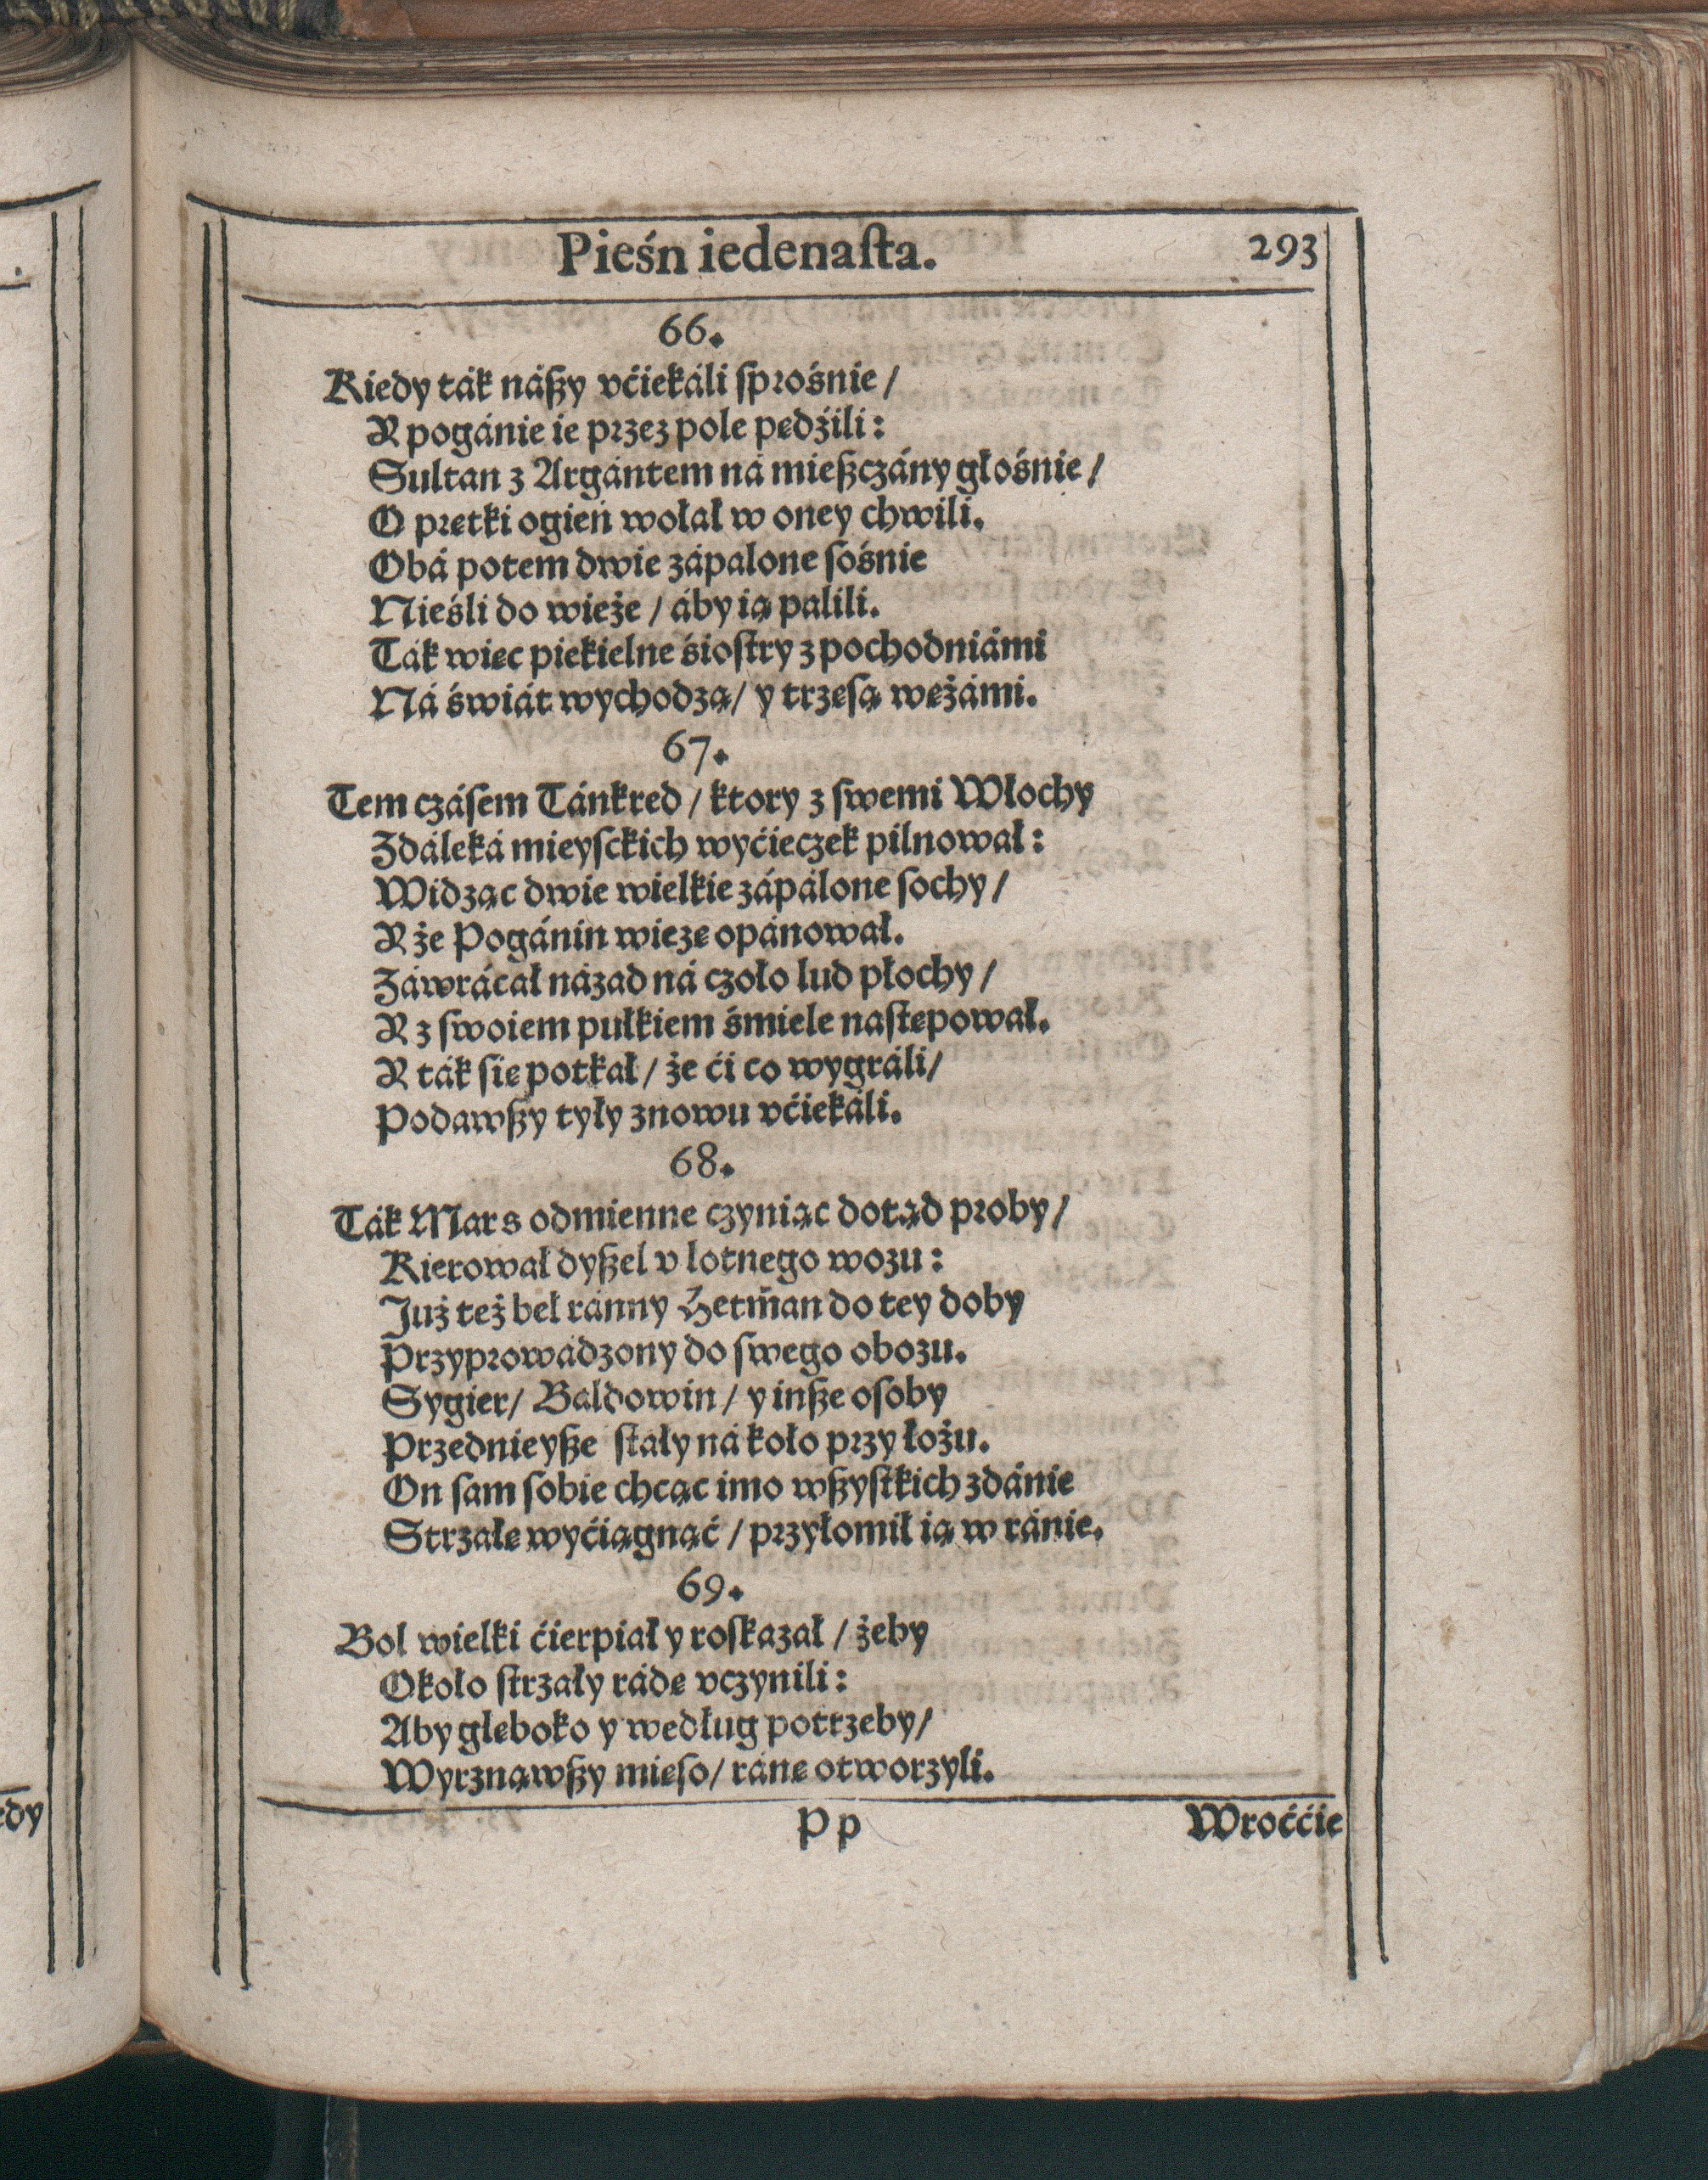 Pieśn iedenaſta.
293
66.
Kiedy ták náßzy vćiekáli ſprośnie /
A pogánie ie przez pole pędźili:
Sultan z Argántem ná mießczány głośnie /
O prętki ogień wołał w oney chwili.
Obá potem dwie zápalone ſośnie
Nieśli do wieże / áby ią palili.
Ták więc piekielne śioſtry z pochodniámi
Ná świát wychodzą / y trzęſą wężámi.
67.
Tem czáſem Tánkred / ktory z ſwemi Włochy
Zdáleká mieyſckich wyćieczek pilnował:
Widząc dwie wielkie zápalone ſochy /
A że Pogánin wieżę opánował.
Záwrácał názad ná czoło lud płochy /
A z ſwoiem pułkiem śmiele naſtępował.
A ták ſię potkał / że ći co wygráli /
Podawßzy tyły znowu vćiekáli.
68.
Ták Mars odmienne czyniąc dotąd proby /
Kierował dyßel v lotnego wozu:
Już też beł ránny Hetm̃an do tey doby
Przyprowádzony do ſwego obozu.
Sygier / Baldowin / y inße oſoby
Przednieyße ſtały ná koło przy łożu.
On ſam ſobie chcąc imo wßzyſtkich zdánie
Strzałę wyćiągnąć / przyłomił ią w ránie.
69.
Bol wielki ćierpiał y roſkazał / żeby
Około ſtrzały rádę vczynili:
Aby głęboko y według potrzeby /
Wyrznąwßzy mięſo / ránę otworzyli.
Pp
Wroććie
edy